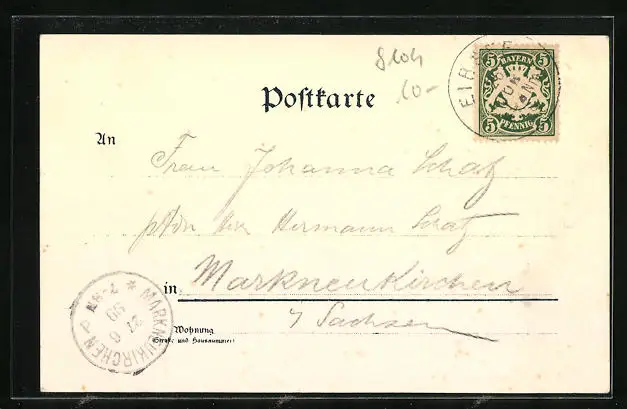 8104
10-
Postkarte
5 BAYERN 5
5 PFENNIG 5
An
Frau Johanna Schatz
Herr Hermann Schatz
in Markneukirchen
Sachsen
Wohnung
(Straße und Hausnummer)
MARKNEUKIRCHEN